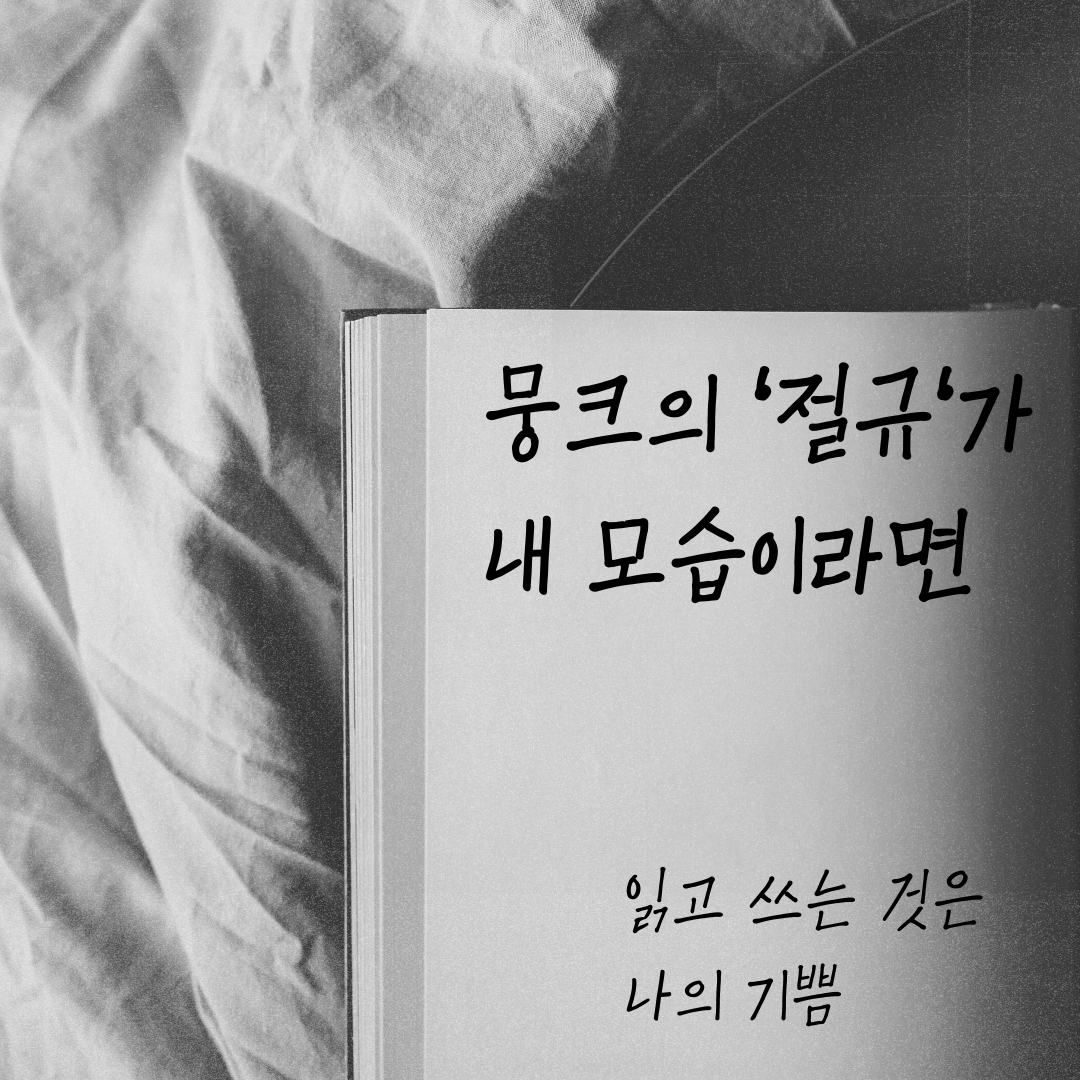 뭉크의 '절규'가
내 모습이라면
읽고 쓰는 것은
나의 기쁨